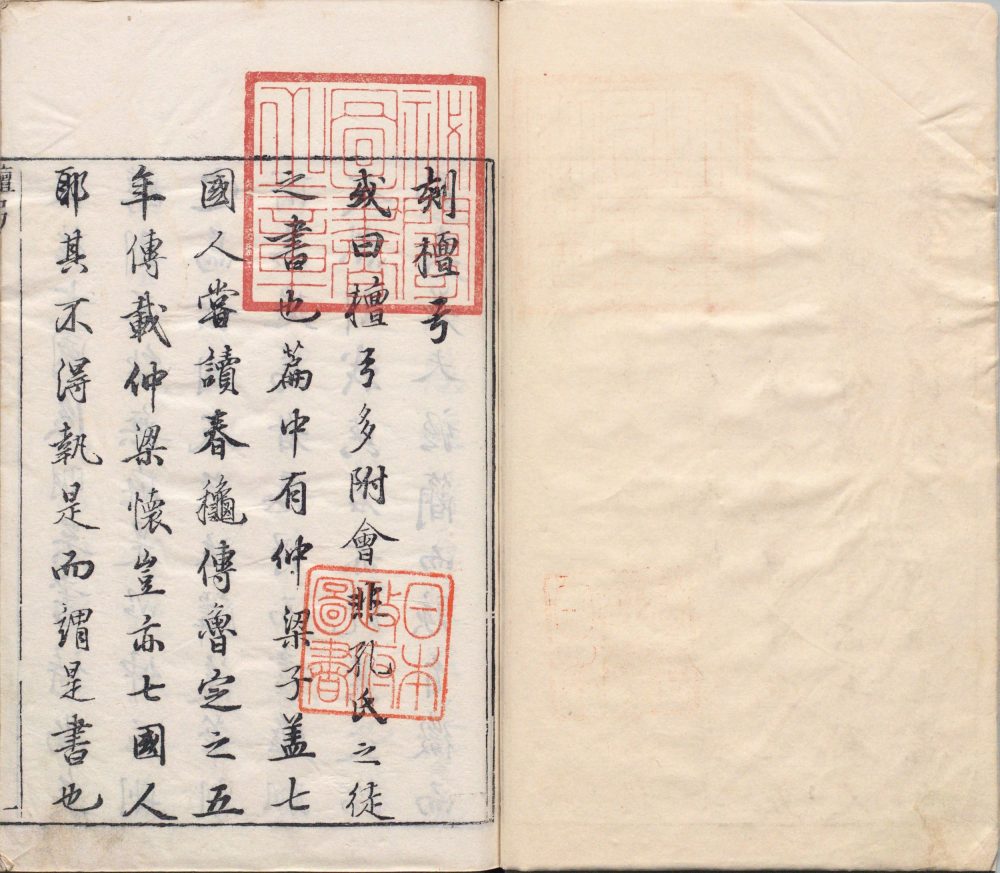 刻檀弓
或曰檀弓多附會非孔氏之徒
之書也篇中有仲梁子盖七
國人嘗讀春龝傳魯定之五
年傳載仲梁懷豈亦七國人
耶其不得執是而謂是書也
日本
政府
圖書
檀弓
一